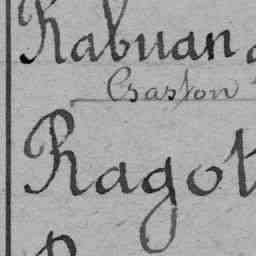 Rabuan
Gaston
Ragot